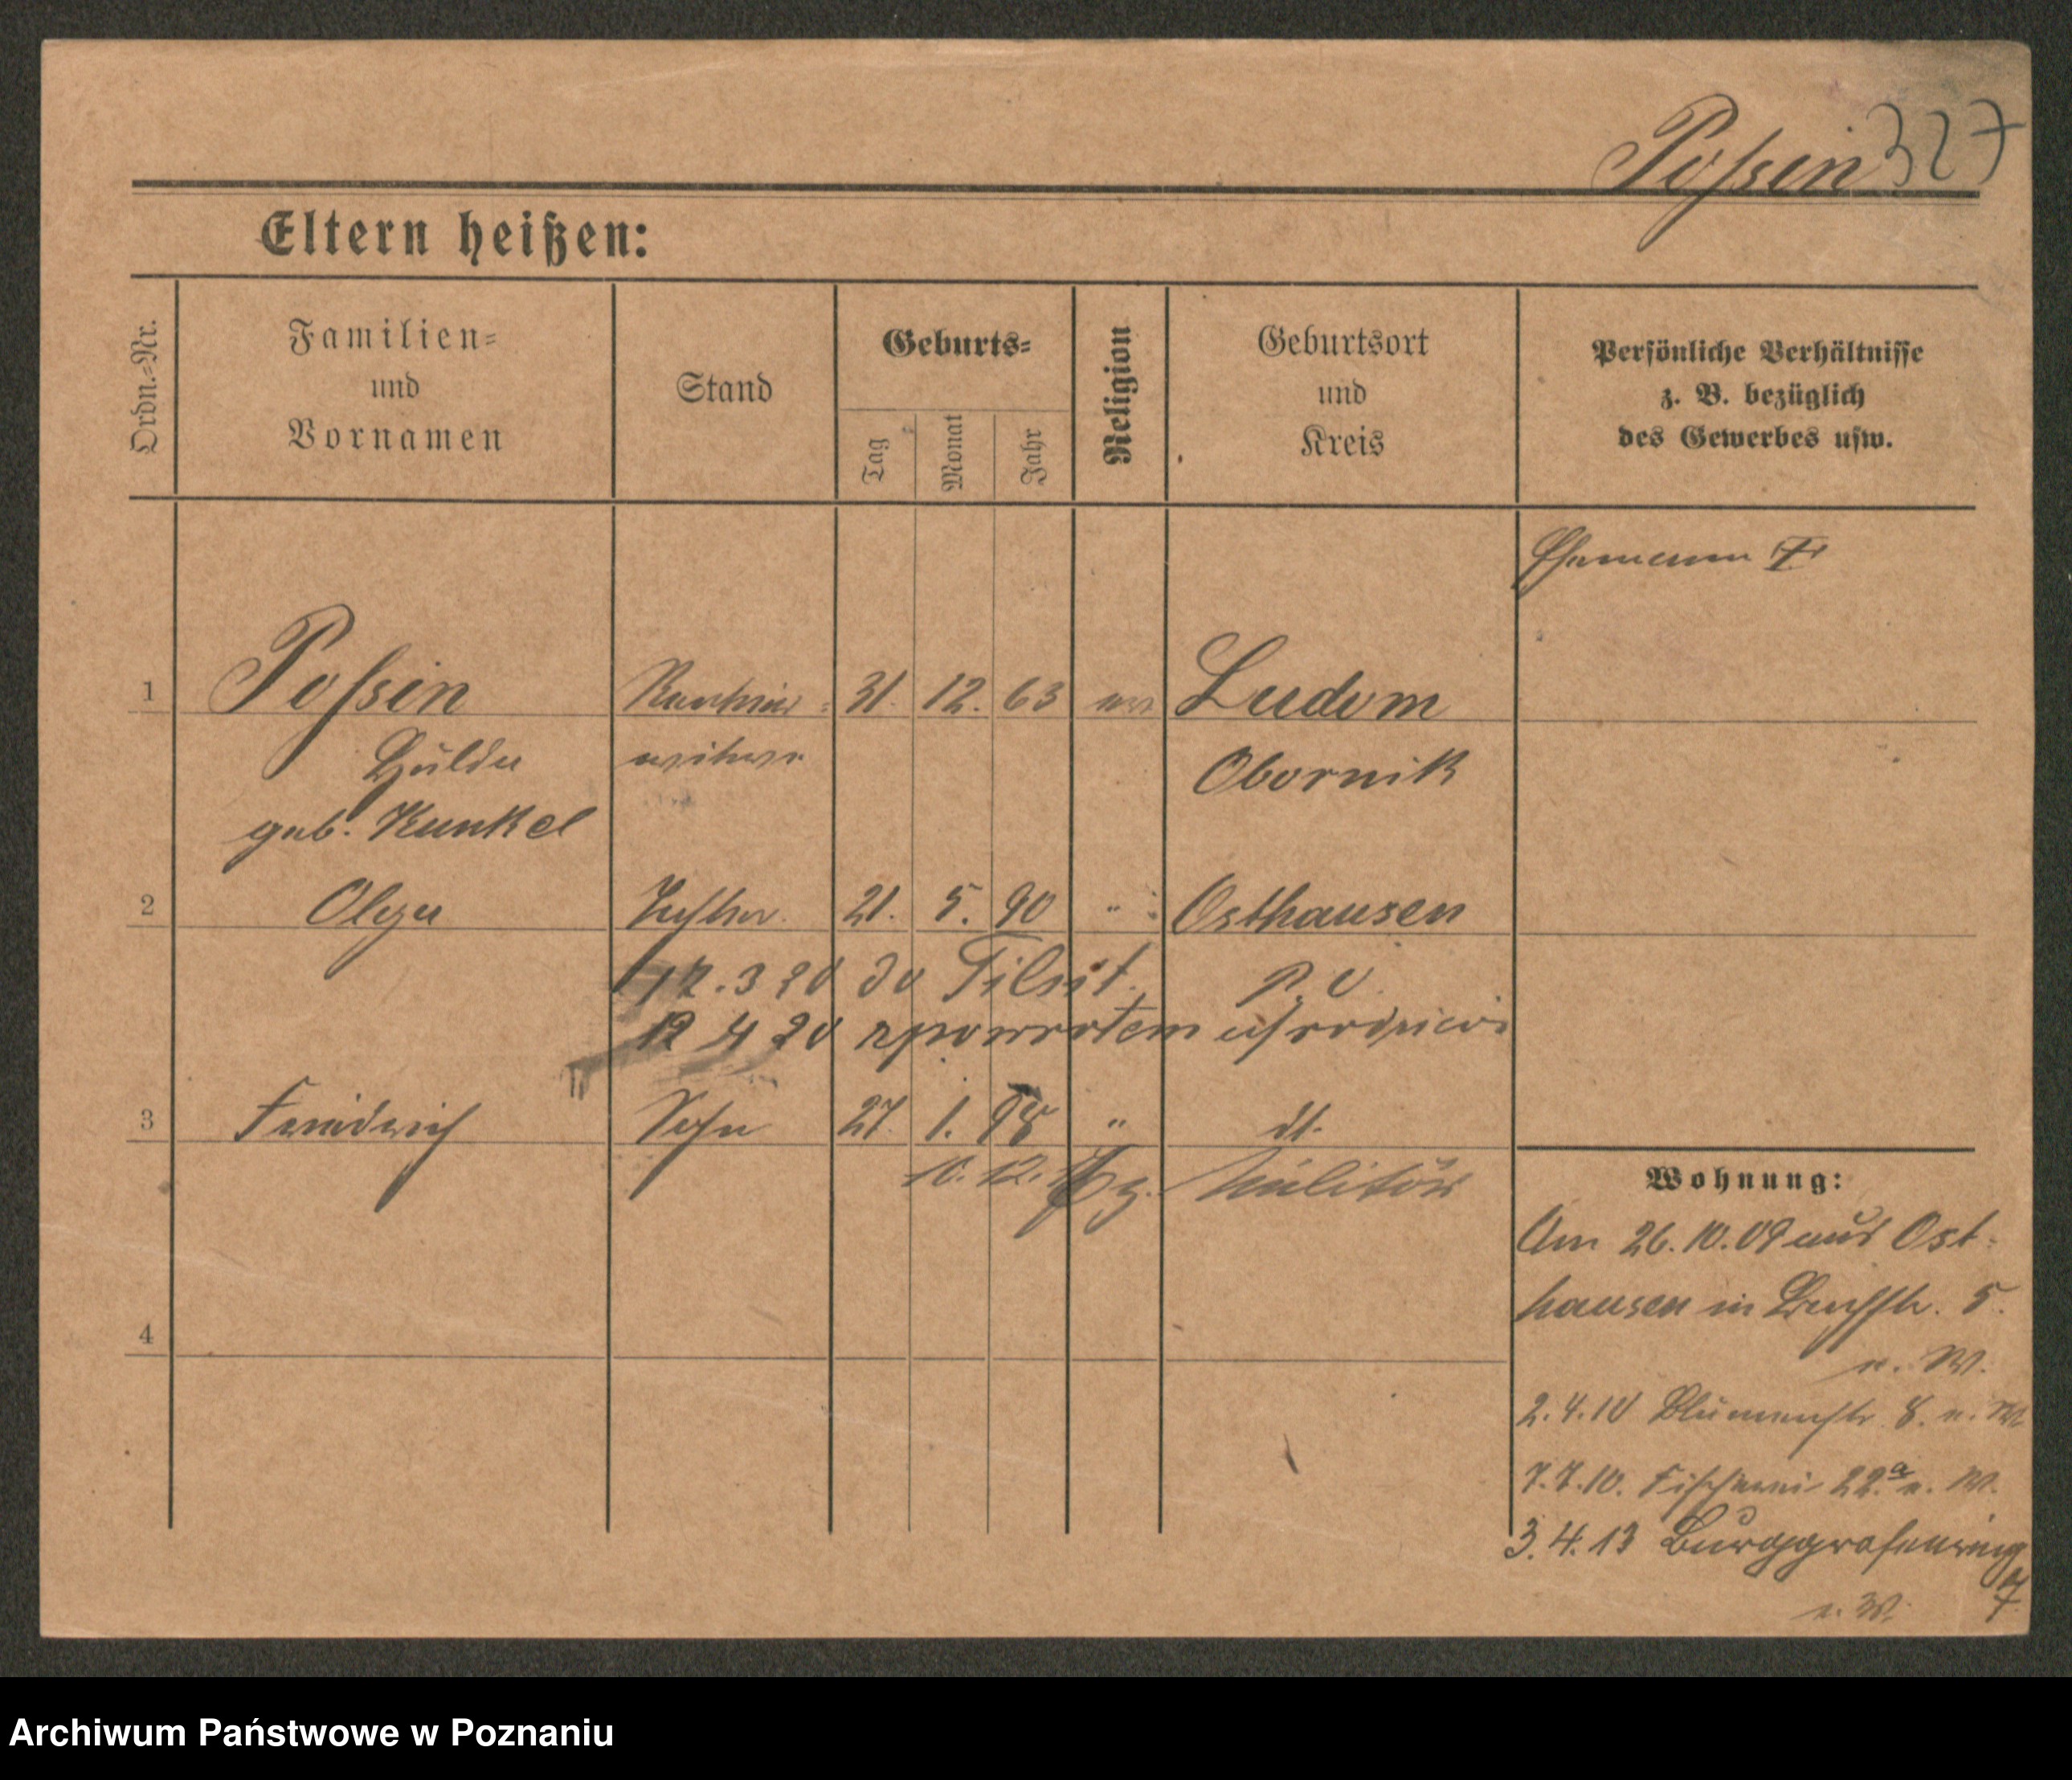 Possin 327
Eltern heißen:
Ordn.-Nr.
Familien-
und
Vornamen
Stand
Geburts-
Tag
Monat
Jahr
Religion
Geburtsort
und
Kreis
Persönliche Verhältnisse
z. B. bezüglich
des Gewerbes usw.
Ehemann †
1 Possin Rentier- 31. 12. 63 ev. Ludom
Hulda witwe Obornik
geb. Kunkel
2 Olga Tochter. 21. 5. 90 " Osthausen
17. 3 20 do Tilsit. p. O.
12 4 20 zpowrotem u rodziców
3 Friedrich Sohn 27. 1. 98 " dt.
10. 12. z. Militär
4
Wohnung:
Am 26.10.09 aus Ost-
hausen in Bachstr. 5.
n. W.
2.4.10 Blumenstr. 8. n. W.
7.7.10. Fischerei 22.a n. W.
3.4.13 Burggrafenring
7
n. W.
Archiwum Państwowe w Poznaniu